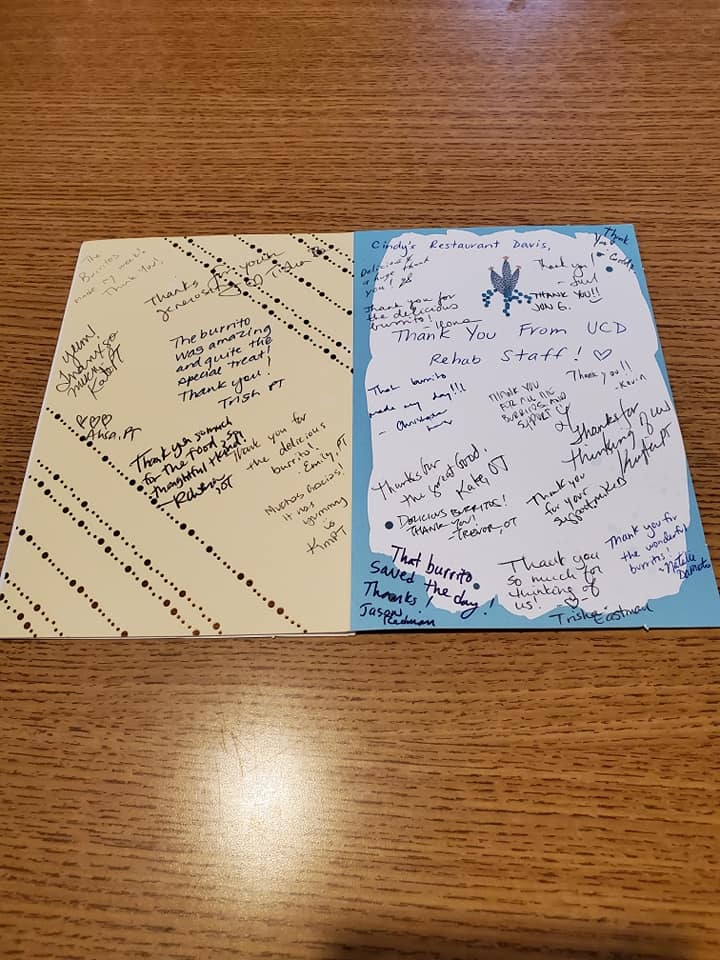 The
Burritos
made my week!
Thank You!
Thanks for your
generosity
Yum!
Thank you so
much!
Kate PT
The burrito
was amazing
and quite the
special treat!
Thank you!
Trish PT
Alisa, PT
Thank you so much
for the food,
thoughtful + kind!
OT
Thank you for
the delicious
burrito!
Emily, PT
Muchas Gracias!
It was
yummy
Kim PT
Cindy's Restaurant Davis,
Thank
you
Delicious
a huge thank
you!
Thank you
THANK YOU!!
JON G.
Thank you for
the delicious
burrito!
- Ileana
Thank You From UCD
Rehab Staff!
That burrito
made my day!!!
- Christina
THANK YOU
FOR THE
BURRITOS AND
SUPPORT
Thank you!!
- Kevin
Thanks for
thinking of us
PT
Thanks for
the great food,
Katey, OT
Thank you
for your
support
DELICIOUS BURRITOS!
THANK YOU!
- TREVOR, OT
That burrito
saved the day!
Thanks!
Jason
Redman
Thank you
so much for
thinking of
us!
Trisha
Eastman
Thank you for
the wonderful
burritos!
- Natalie